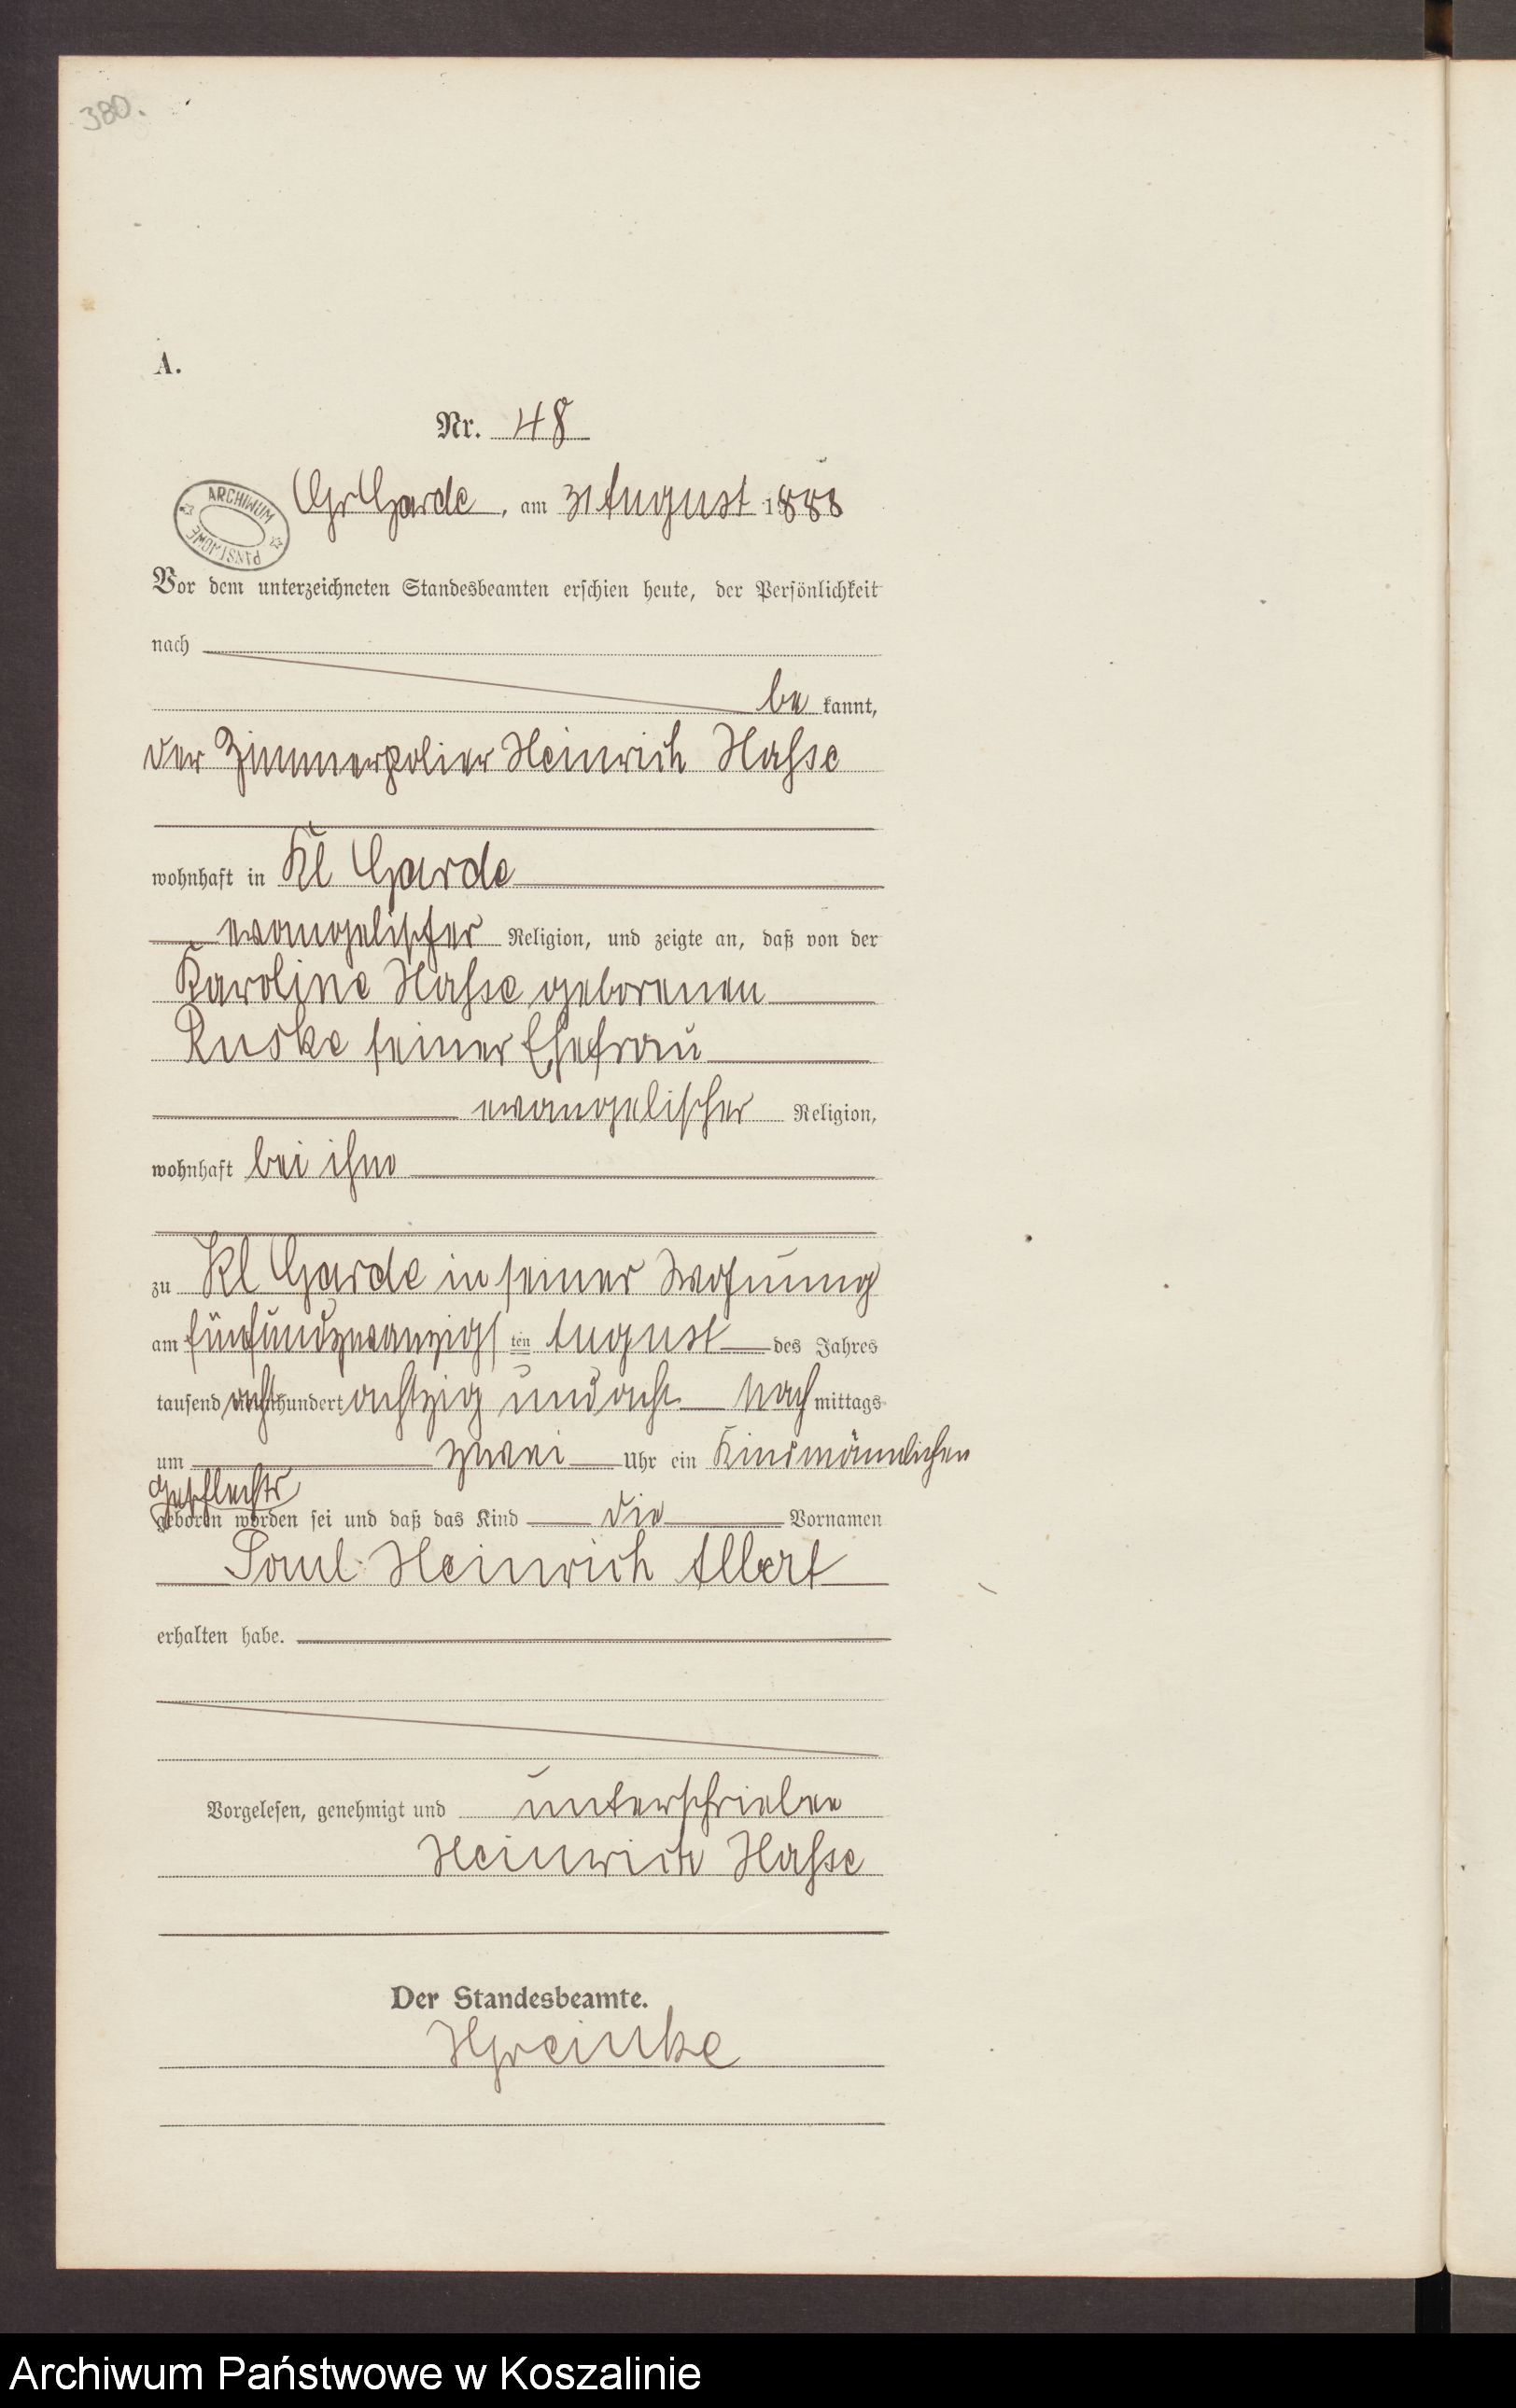 380.
A.
Nr. 48
ARCHIWUM PAŃSTWOWE
Gr Garde, am 31 August 1888
Vor dem unterzeichneten Standesbeamten erschien heute, der Persönlichkeit
nach
be kannt,
der Zimmerpolier Heinrich Hasse
wohnhaft in Kl Garde
evangelischer Religion, und zeigte an, daß von der
Karoline Hasse geborenen
Ruske seiner Ehefrau
evangelischer Religion,
wohnhaft bei ihm
zu Kl Garde in seiner Wohnung
am fünfundzwanzigs ten August des Jahres
tausend acht hundert achtzig und acht Nach mittags
um zwei Uhr ein Kind männlichen
Geschlechts
geboren worden sei und daß das Kind die Vornamen
Paul Heinrich Albert
erhalten habe.
Vorgelesen, genehmigt und unterschrieben
Heinrich Hasse
Der Standesbeamte.
Archiwum Państwowe w Koszalinie